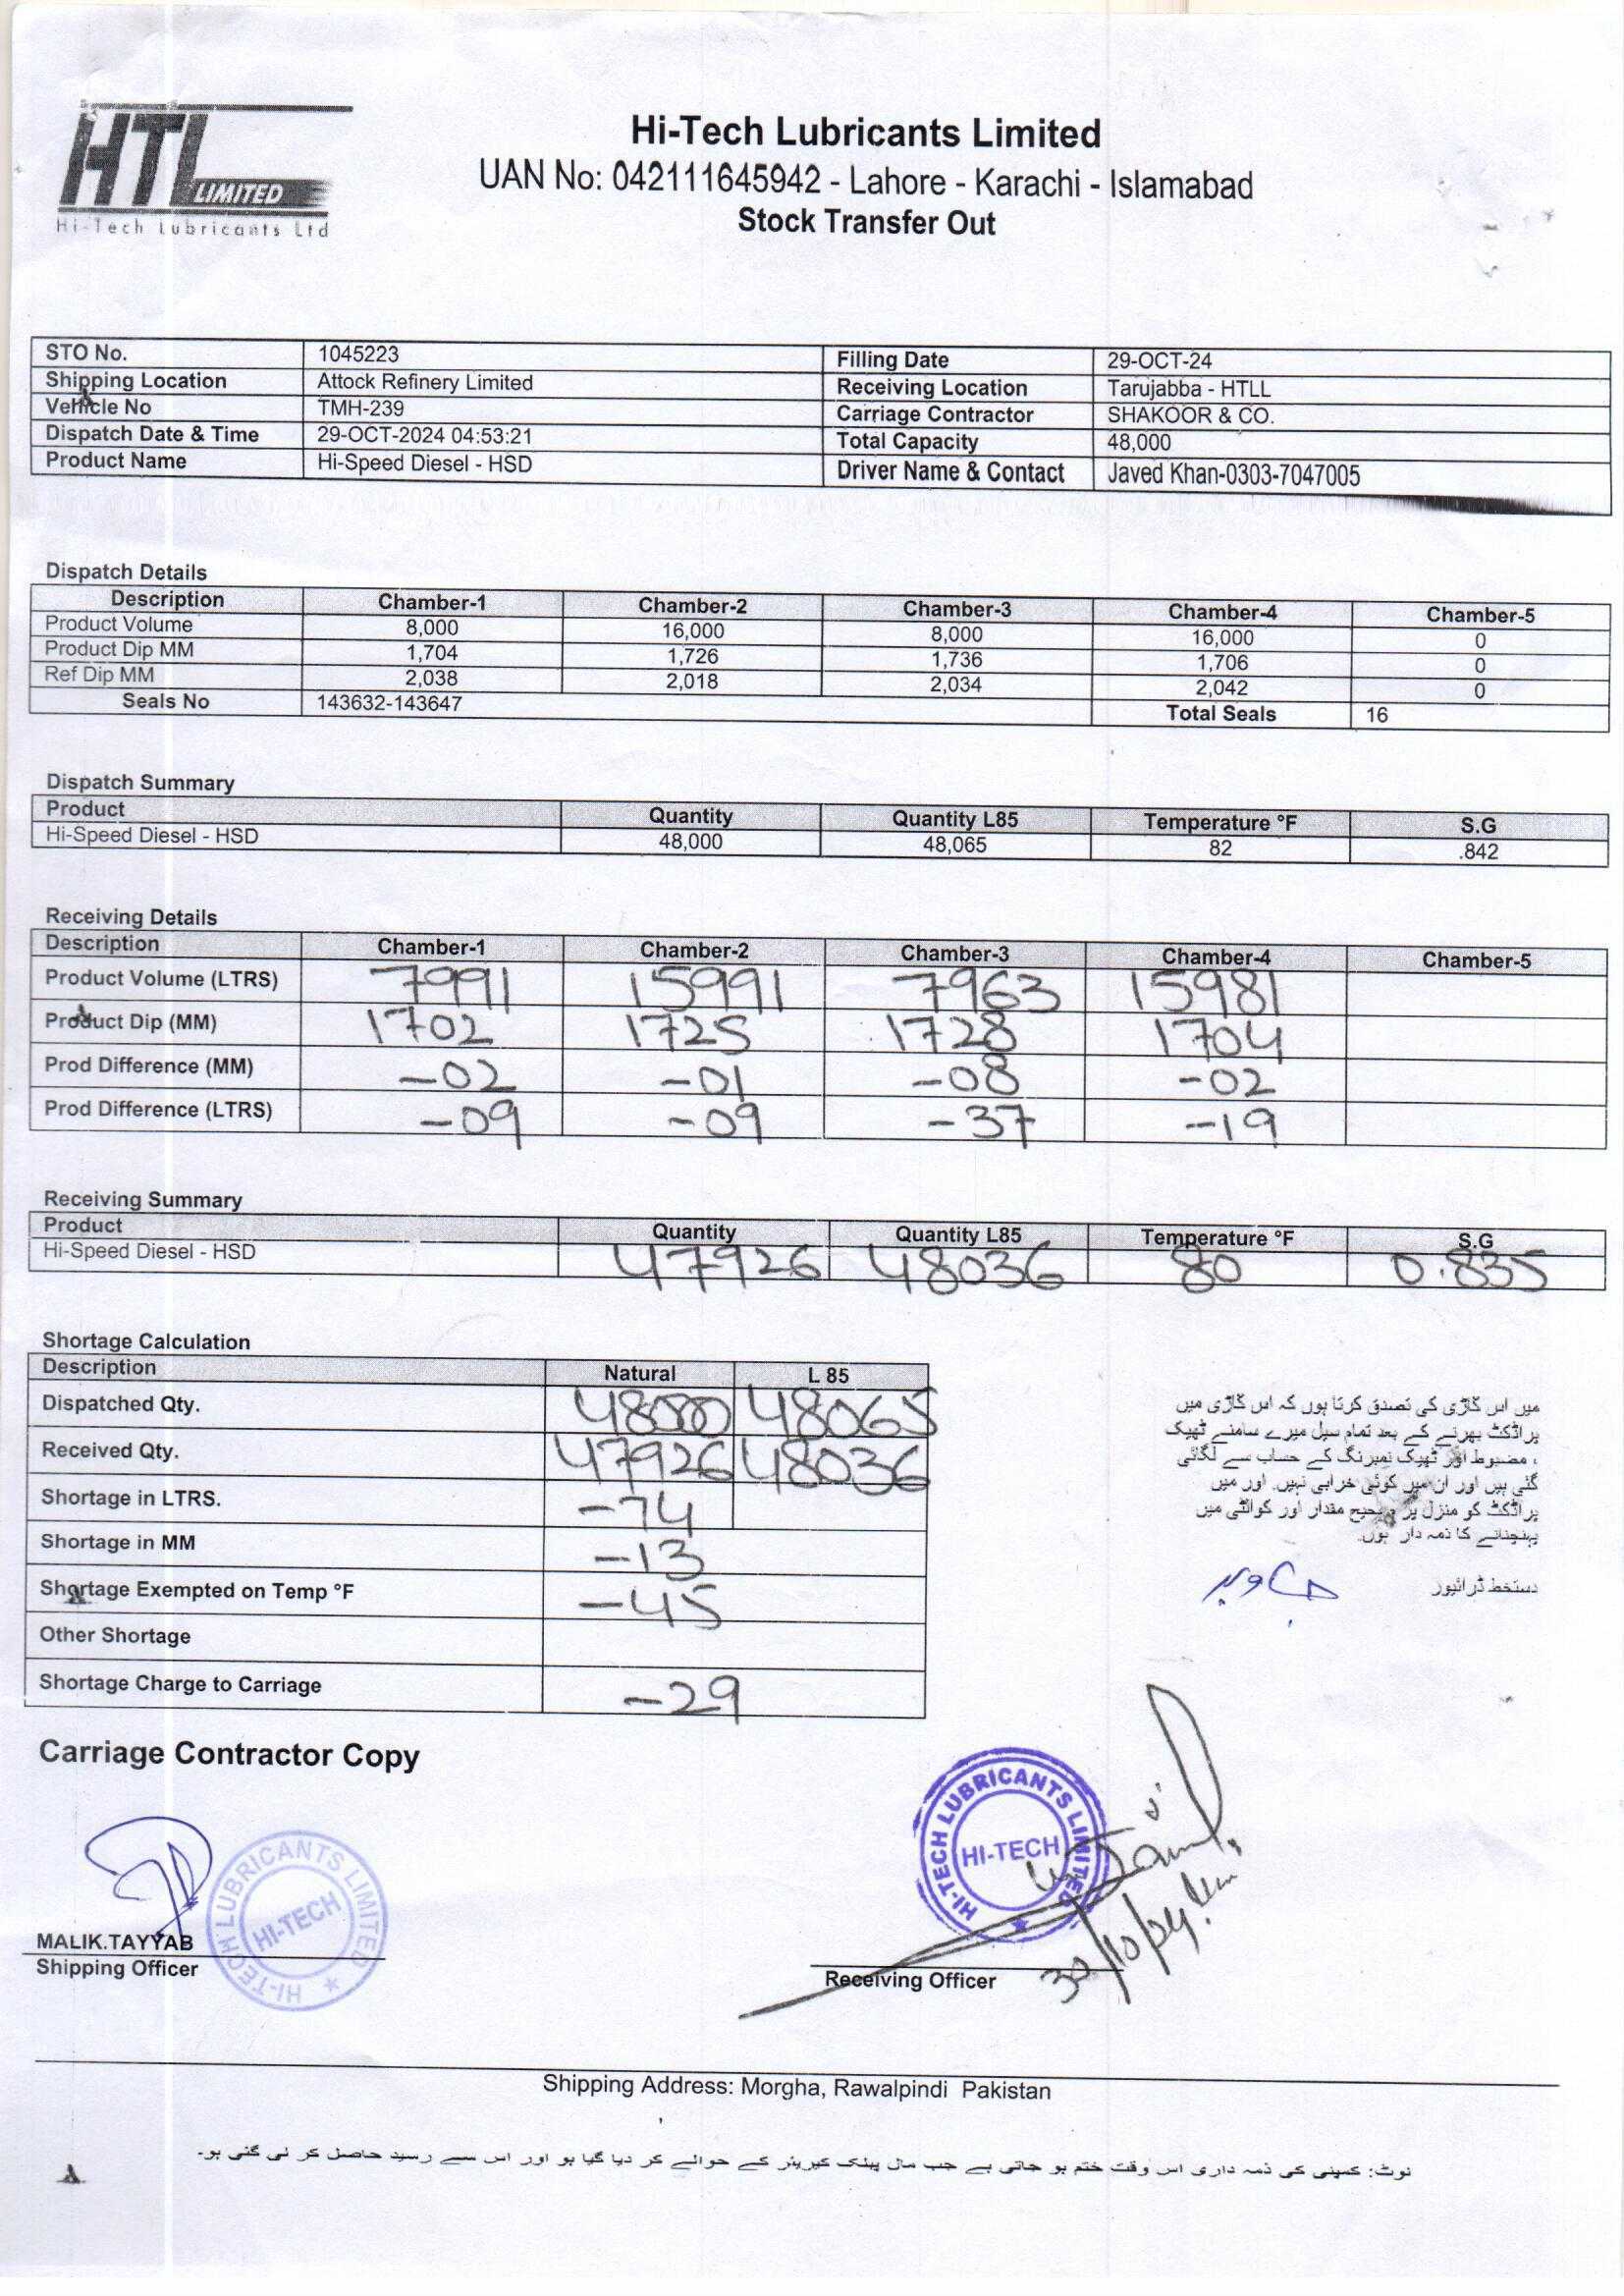 HTL LIMITED
Hi-Tech Lubricants Ltd
Hi-Tech Lubricants Limited
UAN No: 042111645942 - Lahore - Karachi - Islamabad
Stock Transfer Out
STO No. 1045223 Filling Date 29-OCT-24
Shipping Location Attock Refinery Limited Receiving Location Tarujabba - HTLL
Vehicle No TMH-239 Carriage Contractor SHAKOOR & CO.
Dispatch Date & Time 29-OCT-2024 04:53:21 Total Capacity 48,000
Product Name Hi-Speed Diesel - HSD Driver Name & Contact Javed Khan-0303-7047005
Dispatch Details
Description Chamber-1 Chamber-2 Chamber-3 Chamber-4 Chamber-5
Product Volume 8,000 16,000 8,000 16,000 0
Product Dip MM 1,704 1,726 1,736 1,706 0
Ref Dip MM 2,038 2,018 2,034 2,042 0
Seals No 143632-143647 Total Seals 16
Dispatch Summary
Product Quantity Quantity L85 Temperature °F S.G
Hi-Speed Diesel - HSD 48,000 48,065 82 .842
Receiving Details
Description Chamber-1 Chamber-2 Chamber-3 Chamber-4 Chamber-5
Product Volume (LTRS) 7991 15991 7963 15981
Product Dip (MM) 1702 1725 1728 1704
Prod Difference (MM) -02 -01 -08 -02
Prod Difference (LTRS) -09 -09 -37 -19
Receiving Summary
Product Quantity Quantity L85 Temperature °F S.G
Hi-Speed Diesel - HSD 47926 48036 80 0.835
Shortage Calculation
Description Natural L 85
Dispatched Qty. 48000 48065
Received Qty. 47926 48036
Shortage in LTRS. -74
Shortage in MM -13
Shortage Exempted on Temp °F -45
Other Shortage
Shortage Charge to Carriage -29
میں اس گاڑی کی تصدق کرتا ہوں کہ اس گاڑی میں
پراڈکٹ بھرنے کے بعد تمام سیل میرے سامنے ٹھیک
، مضبوط اور ٹھیک نمبرنگ کے حساب سے لگائی
گئی ہیں اور ان میں کوئی خرابی نہیں. اور میں
پراڈکٹ کو منزل پر صحیح مقدار اور کوالٹی میں
پہنچنانے کا ذمہ دار ہوں.
دستخط ڈرائیور جاوید
Carriage Contractor Copy
HI-TECH LUBRICANTS LIMITED
HI-TECH
MALIK.TAYYAB
Shipping Officer
HI-TECH LUBRICANTS LIMITED
HI-TECH
30/10/24
Receiving Officer
Shipping Address: Morgha, Rawalpindi Pakistan
نوٹ: کمپنی کی ذمہ داری اس وقت ختم ہو جاتی ہے جب مال پبلک کیریئر کے حوالے کر دیا گیا ہو اور اس سے رسید حاصل کر لی گئی ہو۔